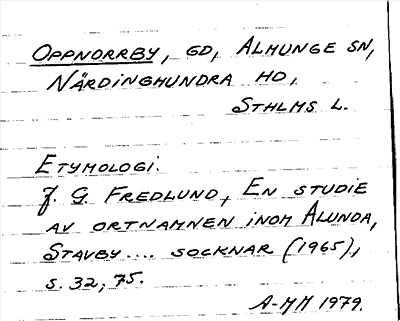 OPPNORRBY, GD, ALMUNGE SN,
NÄRDINGHUNDRA HD,
STHLMS L.
ETYMOLOGI.
J. G. FREDLUND, EN STUDIE
AV ORTNAMNEN INOM ALUNDA,
STAVBY.... SOCKNAR (1965),
S. 32, 75.
A-MH 1979.